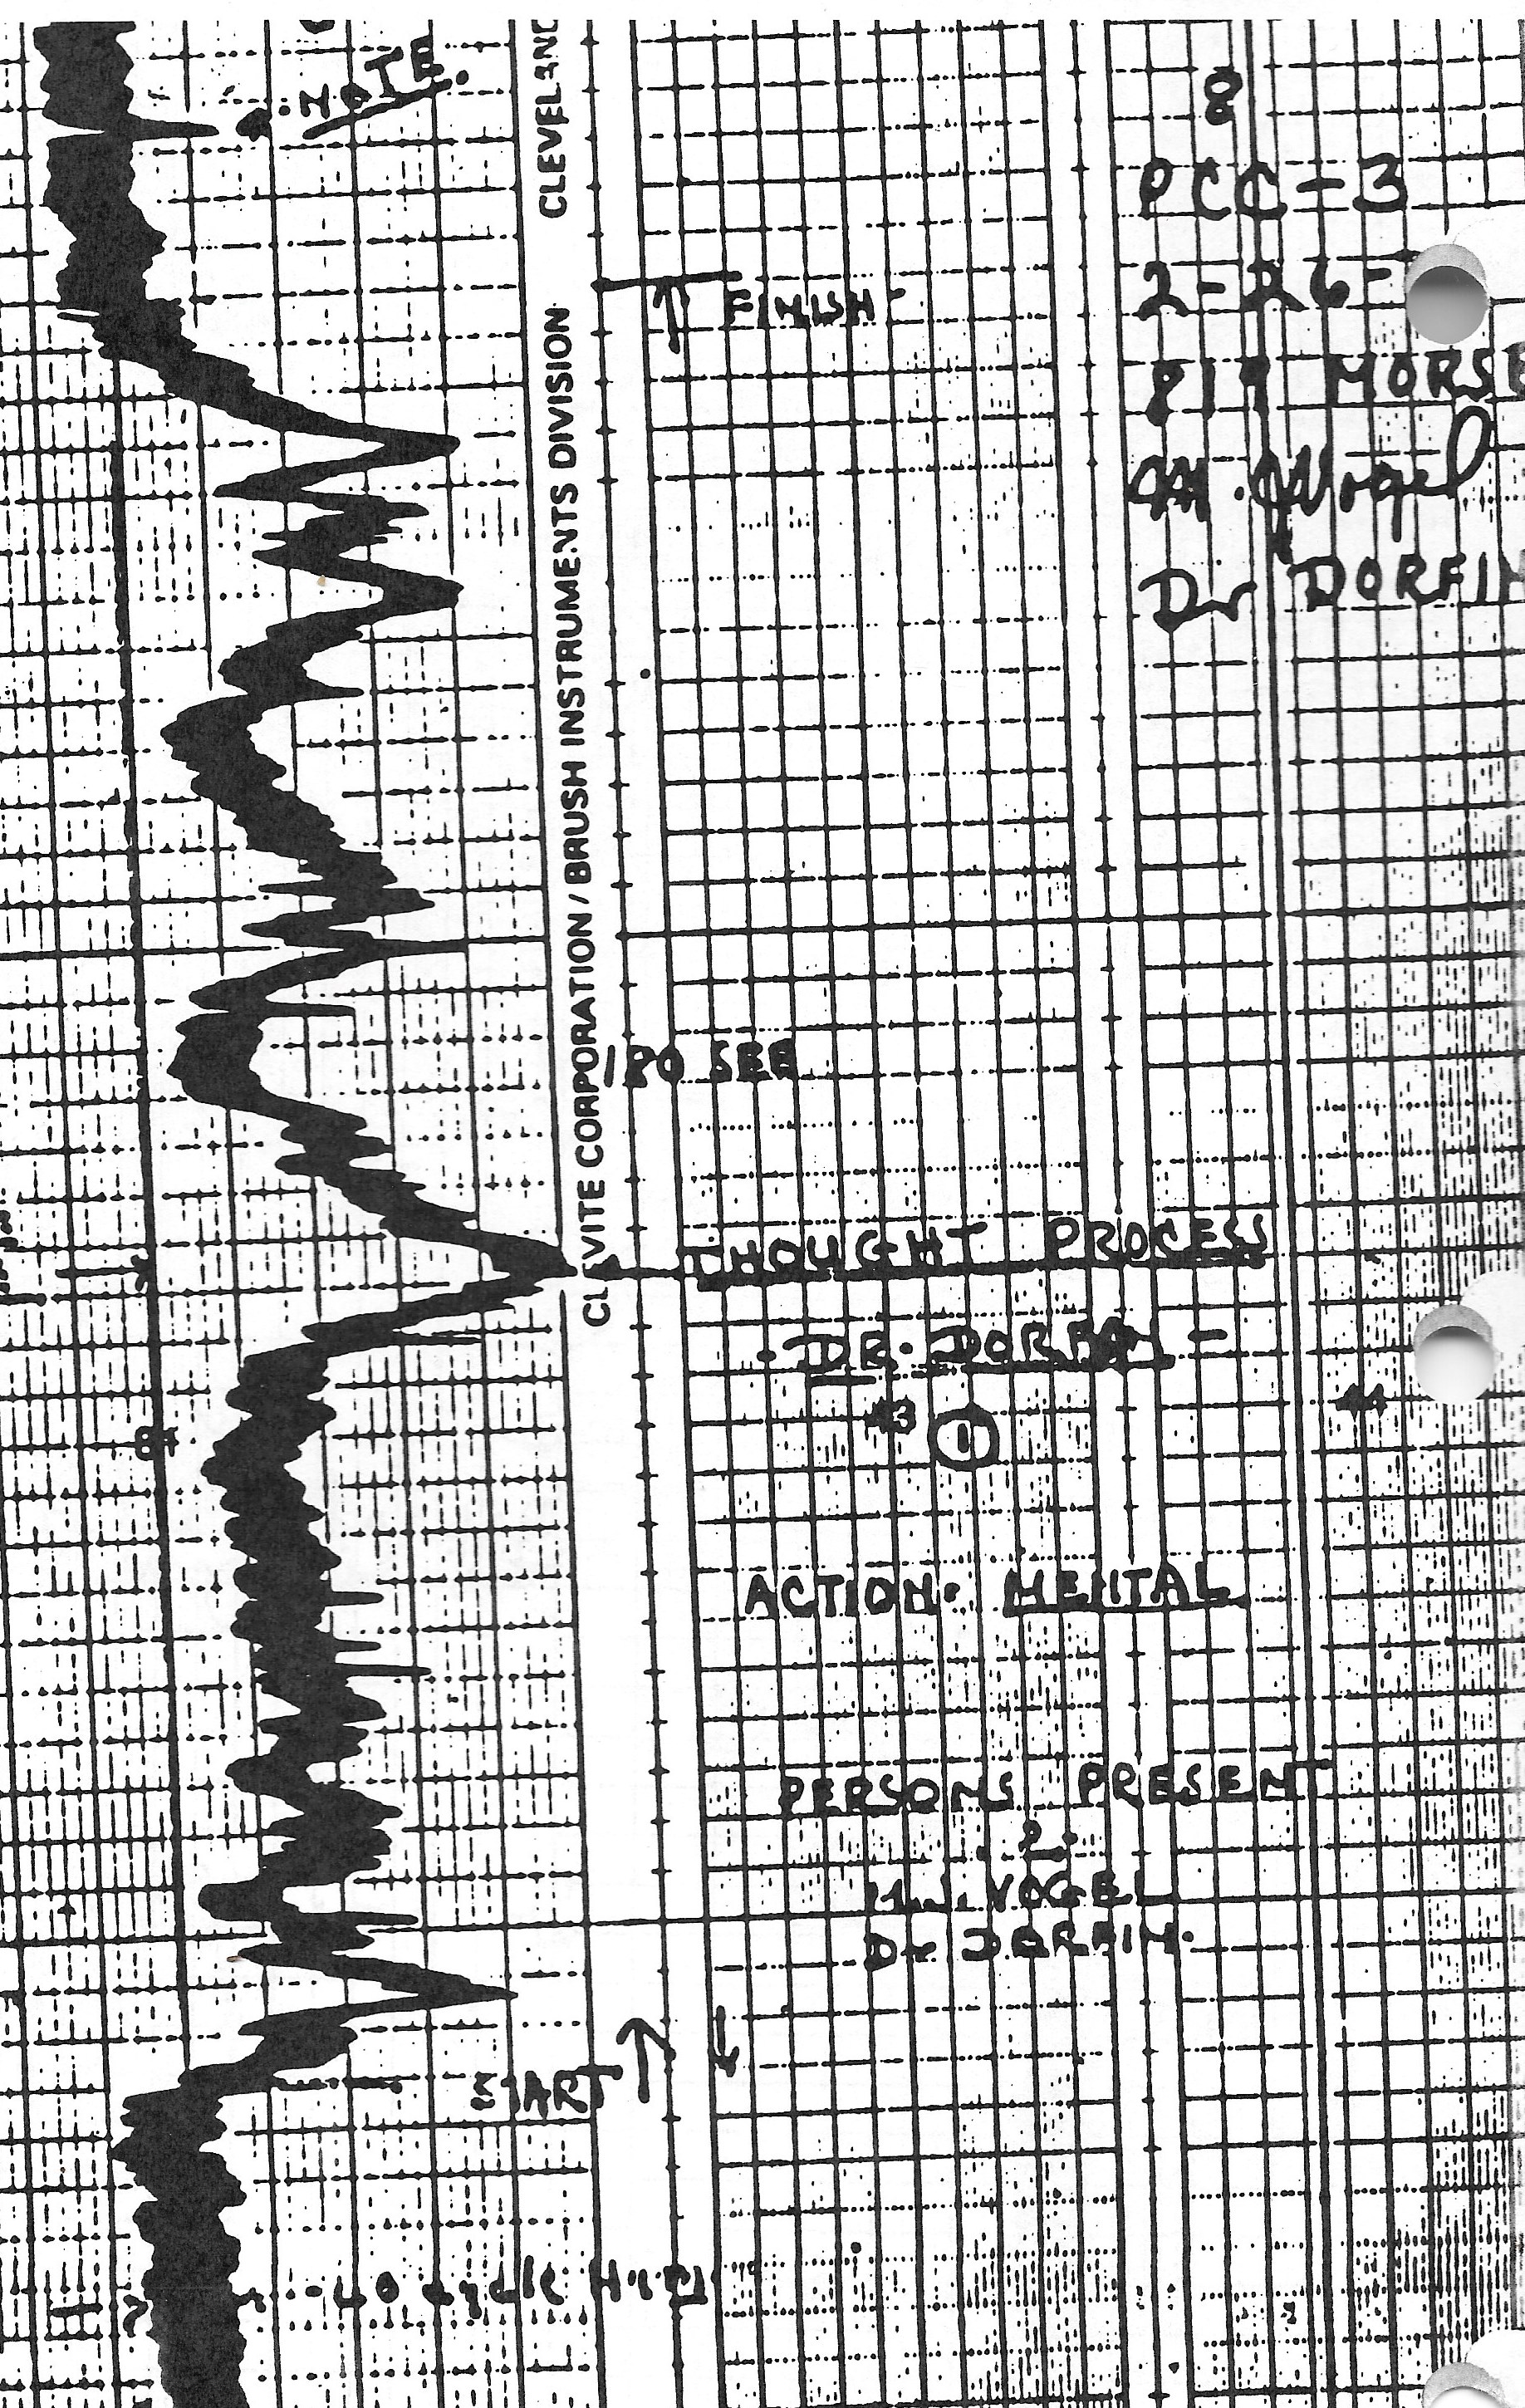 NOTE.
CLEVELAND
8
PCC-3
2-26-
FINISH
819 MORSE
M. J. Vogel
Dr DORFIN
CLEVITE CORPORATION / BRUSH INSTRUMENTS DIVISION
180 SEE
THOUGHT PROCESS
DR. DORFIN -
43
1
44
84
ACTION: MENTAL
PERSONS PRESENT
2.
M.J. VOGEL
Dr DORFIN.
START
cycle